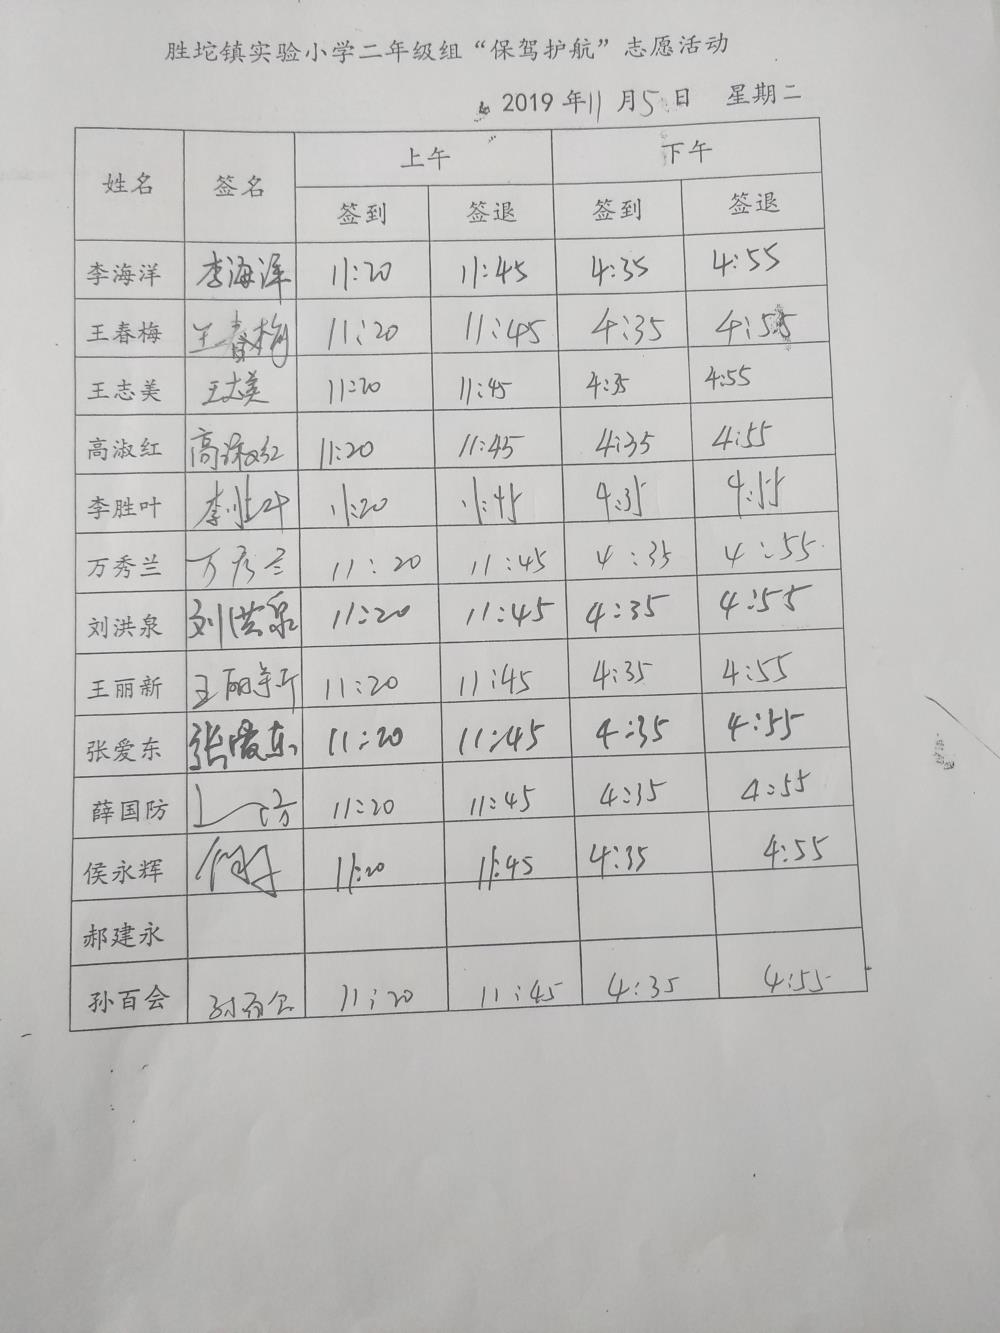 胜坨镇实验小学二年级组“保驾护航”志愿活动
2019 年 11 月 5 日 星期二
姓名 签名 上午 下午
签到 签退 签到 签退
李海洋 李海洋 11:20 11:45 4:35 4:55
王春梅 王春梅 11:20 11:45 4:35 4:55
王志美 王志美 11:20 11:45 4:35 4:55
高淑红 高淑红 11:20 11:45 4:35 4:55
李胜叶 李胜叶 11:20 11:45 4:35 4:55
万秀兰 万秀兰 11:20 11:45 4:35 4:55
刘洪泉 刘洪泉 11:20 11:45 4:35 4:55
王丽新 王丽新 11:20 11:45 4:35 4:55
张爱东 张爱东 11:20 11:45 4:35 4:55
薛国防 11:20 11:45 4:35 4:55
侯永辉 11:20 11:45 4:35 4:55
郝建永
孙百会 孙百会 11:20 11:45 4:35 4:55